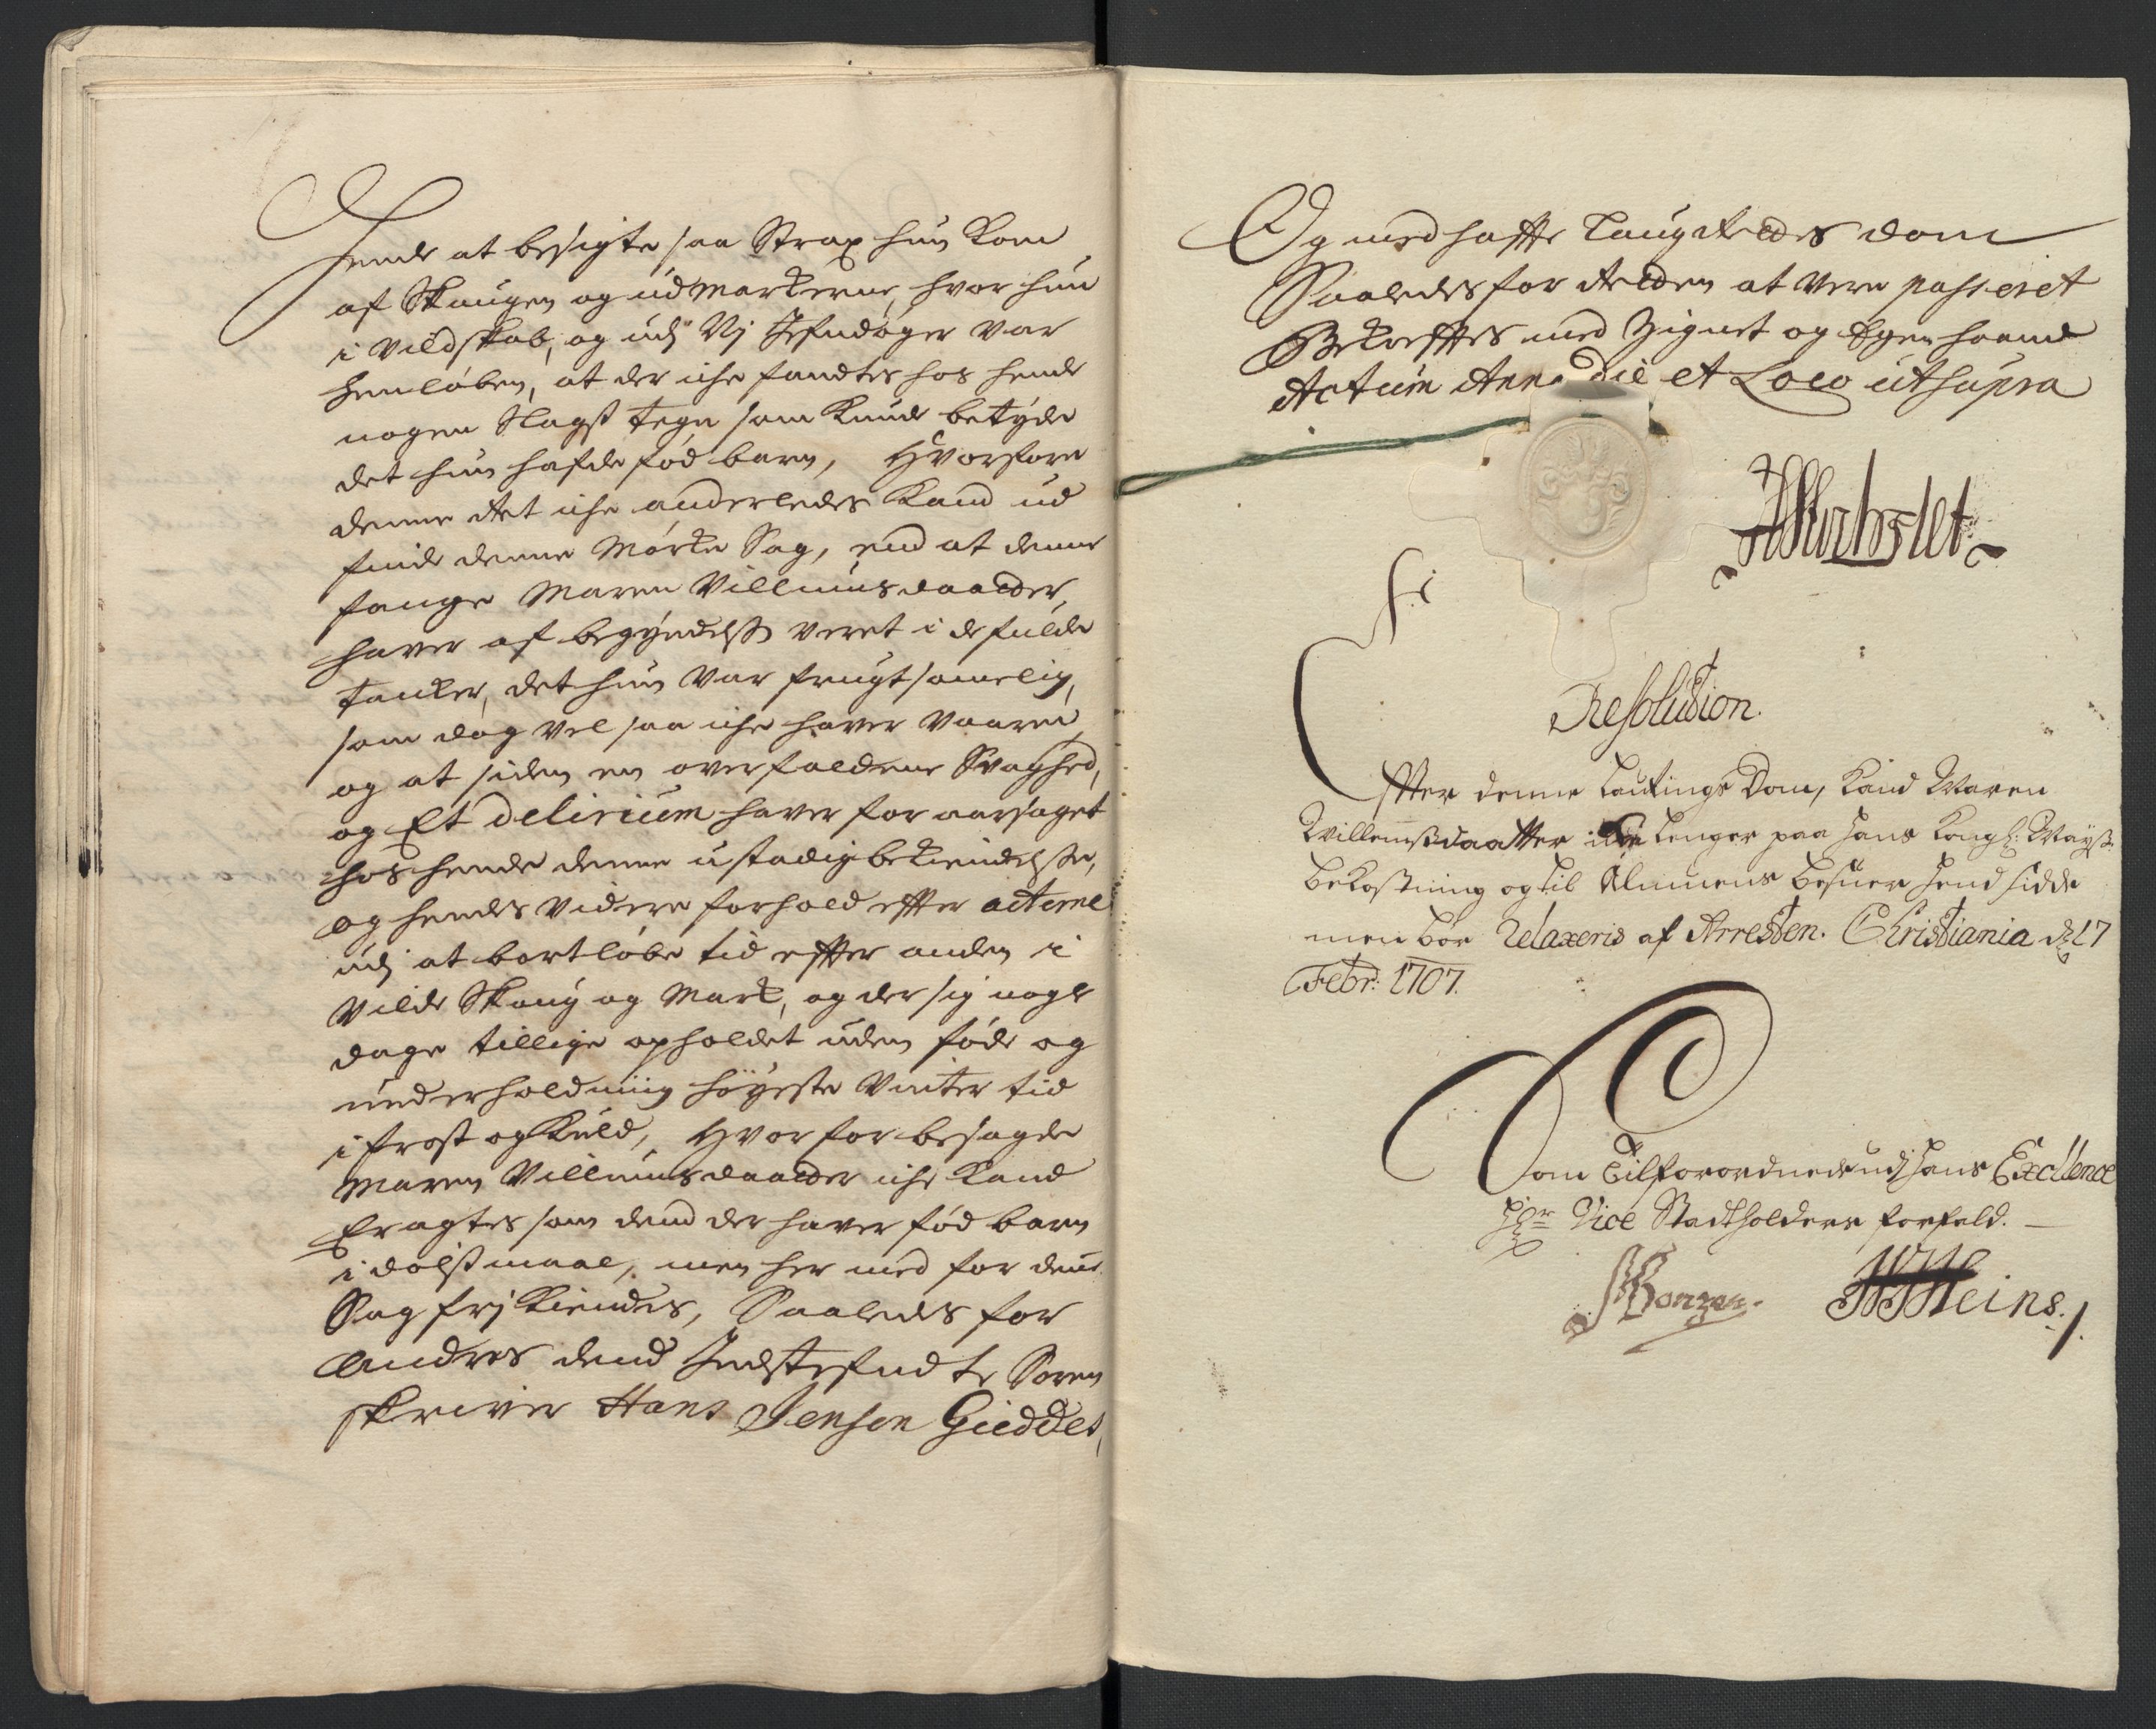 hende at besigte saa Strax hun kom
af Skaugen og udmarkerne, hvor hun
i vildskab, og udj Vj Jefndøger var
henløben, at der iche fandtes hos hende
nogen Slagß tegn som kunde betyde
det hun hafde fød barn, Hvorfore
denne Ret iche anderledes kand ud
finde denne Mørke Sag, end at denne
fange Maren Villumsdaatter,
haver af begyndelße veret i de fulde
tanker, det hun var frugtsommelig,
som dog vel saa iche haver vaaren,
og at siden en overfaldene Svaghed,
og Et delirium haver foraarsaget
hos hende denne ustadig bekiendelße,
og hendes videre forhold effter acterne
udj at bortløbe tid effter anden i
vilde Skoug og Mark, og der sig nogle
dage tillige opholdet uden føde og
underholdning høyeste Vinter tid
i frost og kuld, Hvorfor besagde
Maren Villumsdaatter iche kand
Eragtes som dend der haver fød barn
i dølßmaal, men her med for denne
Sag frj kiendes, Saaledes for
andres dend Indstefndte Soren
skriver Hans Jensen Gieddes,
Og med haffte Laugrettes dom
Saaledes for Retten at vere passeret
Bekrefftes med Zignet og Egen haand
Actum Anno die et Loco ut supra
Resolution.
Effter denne Laugtings Dom, kand Maren
Willumßdaatter iche lenger paa Hans Kongl: Mayß:
bekostning og til Almuens besuer hend sidde
men bør Relaxeris af Arresten. Christiania d: 17
Febr: 1707.
Som Tilforordnede udj Hans Excellence
Hr Vice Stadtholders forfald.